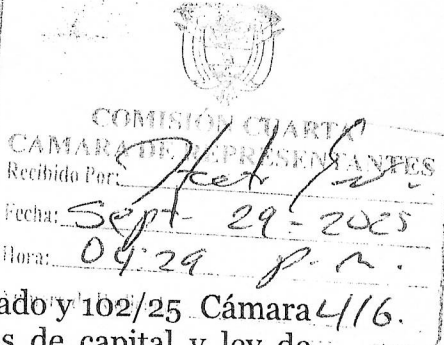 COMISIÓN CUARTA
CAMARA DE REPRESENTANTES
Recibido Por:
Fecha: Sept - 29 - 2025
Hora: 04:29 p.m.
ado y 102/25 Cámara 416.
s de capital y ley de